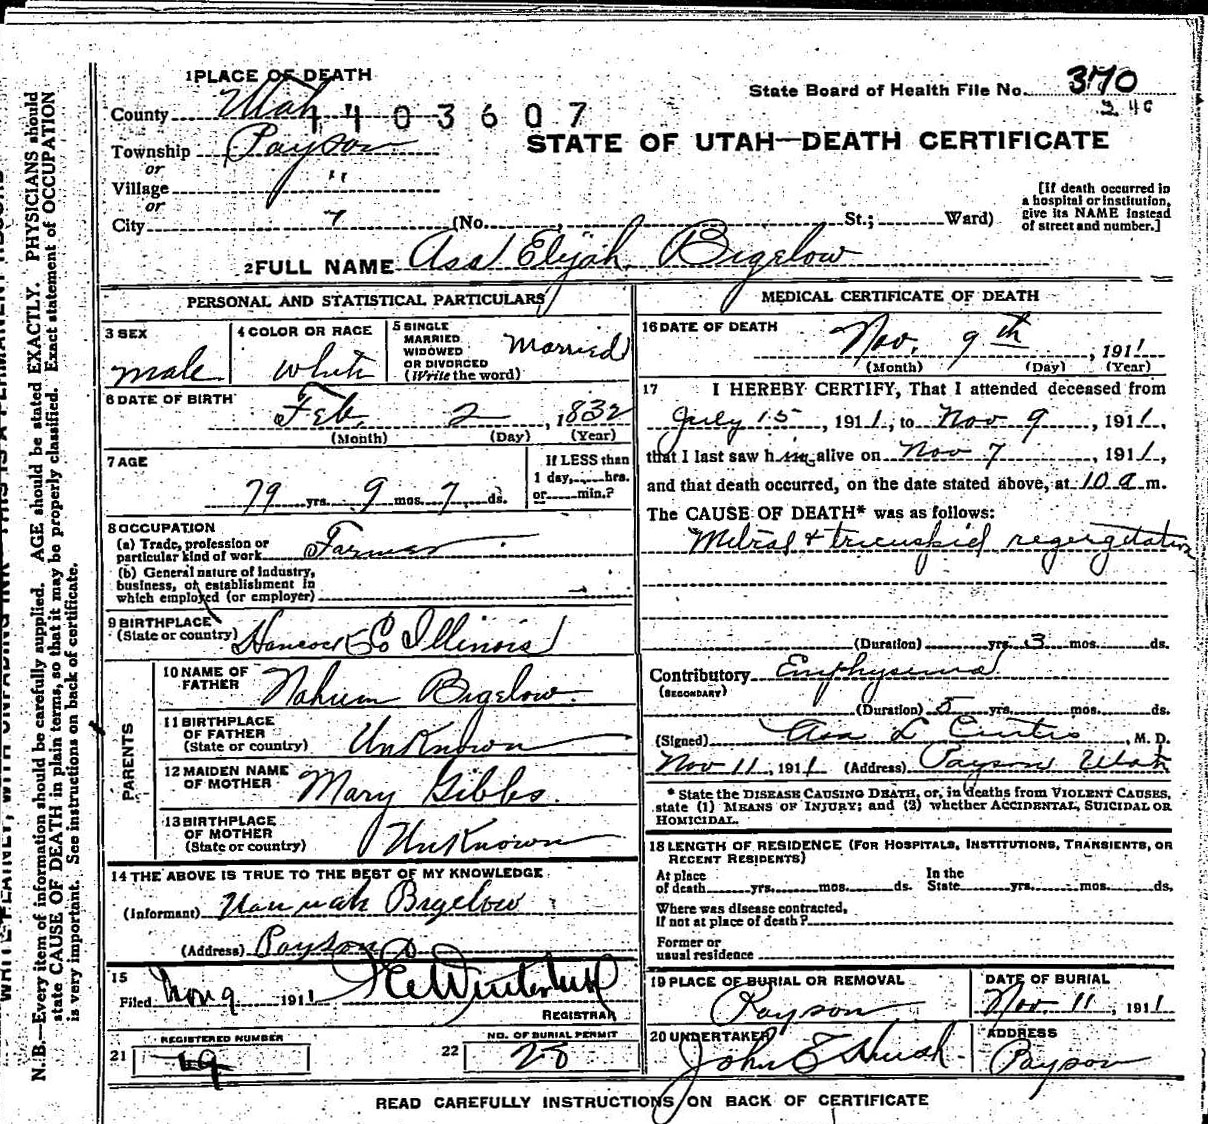 1 PLACE OF DEATH
State Board of Health File No. 370
240
County Utah
1403607
STATE OF UTAH—DEATH CERTIFICATE
Township Payson
or
Village "
or
City "
(No. St.; Ward)
[If death occurred in a hospital or institution, give its NAME instead of street and number.]
2 FULL NAME Asa Elijah Bigelow
PERSONAL AND STATISTICAL PARTICULARS
3 SEX
male
4 COLOR OR RACE
white
5 SINGLE MARRIED WIDOWED OR DIVORCED (Write the word)
Married
6 DATE OF BIRTH
Feb. 2, 1832
(Month) (Day) (Year)
7 AGE
79 yrs. 9 mos. 7 ds.
If LESS than 1 day, hrs. or min.?
8 OCCUPATION
(a) Trade, profession or particular kind of work Farmer
(b) General nature of industry, business, or establishment in which employed (or employer)
9 BIRTHPLACE
(State or country) Hancock Co Illinois
PARENTS
10 NAME OF FATHER Nahum Bigelow
11 BIRTHPLACE OF FATHER (State or country) Unknown
12 MAIDEN NAME OF MOTHER Mary Gibbs
13 BIRTHPLACE OF MOTHER (State or country) Unknown
14 THE ABOVE IS TRUE TO THE BEST OF MY KNOWLEDGE
(Informant) Hannah Bigelow
(Address) Payson
15
Filed 1911
REGISTRAR
REGISTERED NUMBER
21 69
NO. OF BURIAL PERMIT
22 28
MEDICAL CERTIFICATE OF DEATH
16 DATE OF DEATH
Nov. 9th, 1911
(Month) (Day) (Year)
17 I HEREBY CERTIFY, That I attended deceased from
July 15, 1911, to Nov 9, 1911,
that I last saw him alive on Nov 7, 1911,
and that death occurred, on the date stated above, at 10 a m.
The CAUSE OF DEATH* was as follows:
Mitral & tricuspid regergetation
(Duration) yrs. 3 mos. ds.
Contributory Emphysema
(SECONDARY)
(Duration) 5 yrs. mos. ds.
(Signed) Asa L Curtis, M. D.
Nov 11, 1911 (Address) Payson Utah
* State the DISEASE CAUSING DEATH, or, in deaths from VIOLENT CAUSES, state (1) MEANS OF INJURY; and (2) whether ACCIDENTAL, SUICIDAL OR HOMICIDAL.
18 LENGTH OF RESIDENCE (FOR HOSPITALS, INSTITUTIONS, TRANSIENTS, OR RECENT RESIDENTS)
At place of death yrs. mos. ds. In the State yrs. mos. ds.
Where was disease contracted, If not at place of death?
Former or usual residence
19 PLACE OF BURIAL OR REMOVAL
Payson
DATE OF BURIAL
Nov. 11, 1911
20 UNDERTAKER
John E Huish
ADDRESS
Payson
READ CAREFULLY INSTRUCTIONS ON BACK OF CERTIFICATE
N. B.—Every item of information should be carefully supplied. AGE should be stated EXACTLY. PHYSICIANS should
state CAUSE OF DEATH in plain terms, so that it may be properly classified. Exact statement of OCCUPATION
is very important. See instructions on back of certificate.